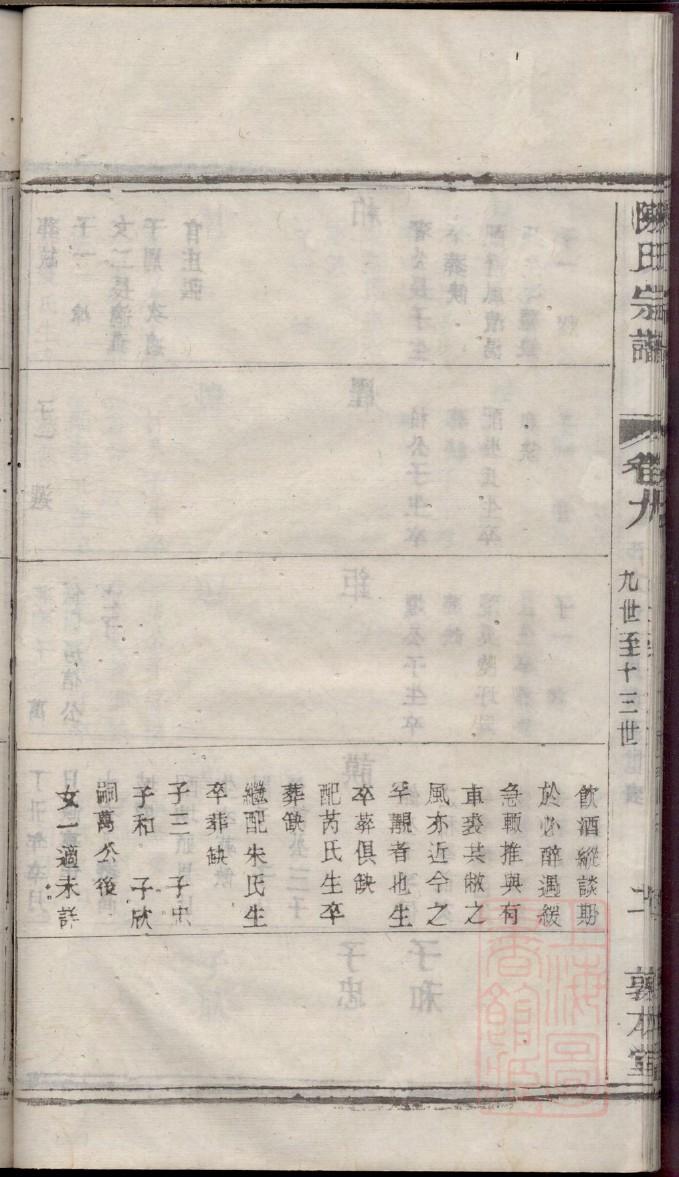 陳氏宗譜
卷九
九世至十三世
敦本堂
飲酒縱談期
於必醉遇緩
急輙推與有
車裘共敝之
風亦近今之
罕覯者也生
卒葬俱缺
配芮氏生卒
葬缺
繼配朱氏生
卒葬缺
子三 子忠
子和 子欣
嗣萬公後
女一適未詳
上海圖書館藏